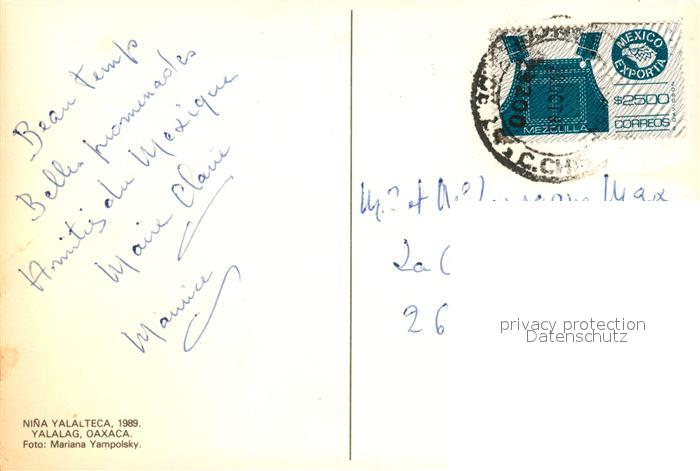 Beau temps
Belles promenades
Amitiés du Mexique
Marie Claire
Maurice
NIÑA YALALTECA, 1989.
YALALAG, OAXACA.
Foto: Mariana Yampolsky.
MEXICO
EXPORTA
$2500
CORREOS
MEZCLILLA
C.CHIS
26
privacy protection
Datenschutz